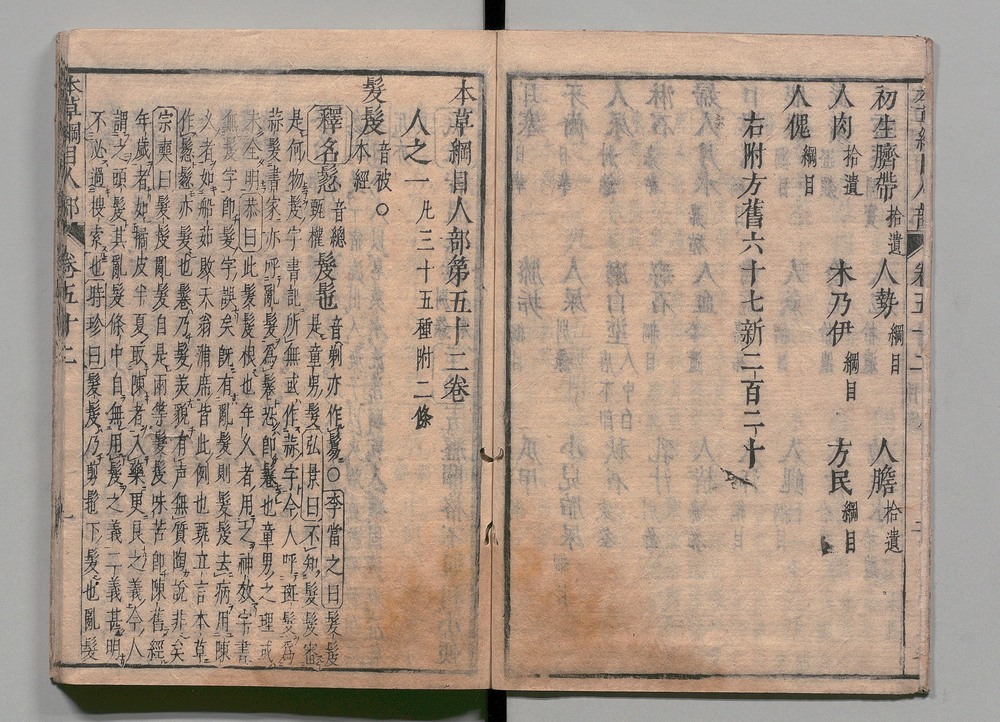 初生臍帶 拾遺 人勢 綱目 人膽 拾遺
人肉 拾遺 木乃伊 綱目 方民 綱目
人傀 綱目
右附方舊六十七新二百二十
本草綱目人部第五十二卷
人之一 凡三十五種附二條
髮髲 音被 ○本經
釋名鬊 音總 甄權 髲髢 音剃亦作鬄○李當之曰髮髲
是童男髮弘景曰不知髮髲審
是何物髲字書記所無或作蒜字今人呼斑髮爲
蒜髮書家亦呼亂髮爲鬊恐即鬊也童男之理或
未全明恭曰此髮髲根也年久者用之神效字書
無髲字即髮字誤矣既有亂髮則髮髲去病用陳
久者如船茹敗天翁蒲席皆此例也甄立言本草
作鬊鬊亦髮也鬊乃髮美貌有声無質陶說非矣
宗奭曰髮髲亂髮自是兩等髮髲味苦即陳舊經
年歲者如橘皮半夏取陳者入藥更良之義今人
謂之頭髲其亂髮條中自無用髲之義二義甚明
不必過搜索也時珍曰髮髲乃剪髢下髮也亂髮
卷五十二